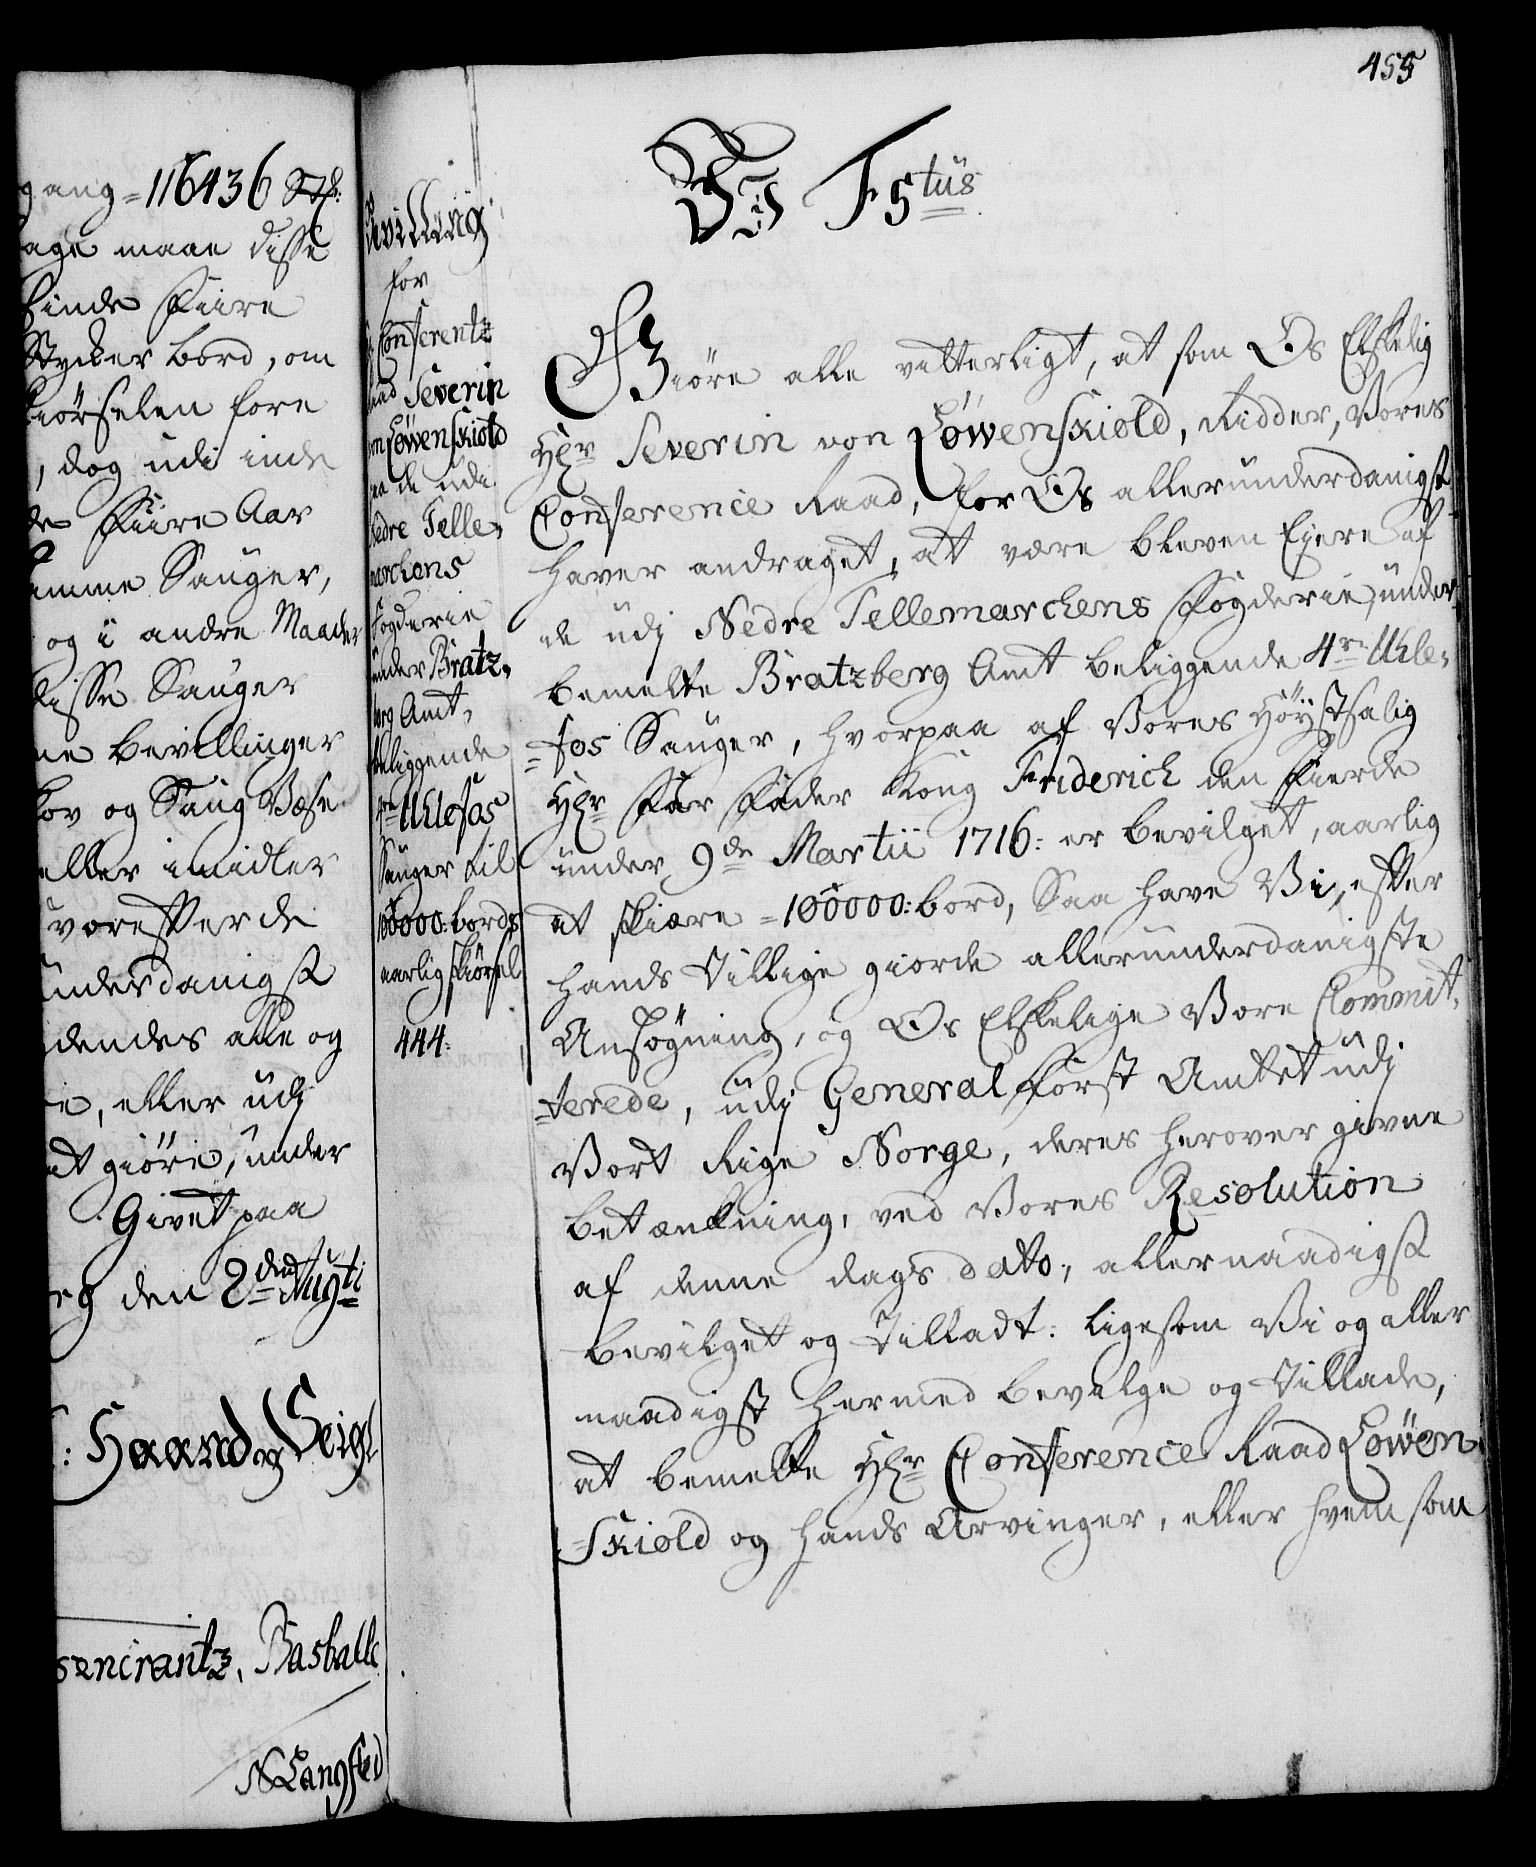 455
gang = 116436 Stk:
age maae disse
binde Fiire
Stycker bord, om
kiörselen fore
, dog udi inde
de Fiire Aar
amme Sauger,
og i andre Maader
disse Sauger
ne bevillinger
kov og Saug Væse
eller imidler
vorefter de
underdanigst
dendes alle og
re, eller udj
at giöre, under
Givet paa
rg den 2den Augti
: Haand og Seigl
sencrantz, Basballe
N Langsted
evilling
for
Conferentz
aad Severin
on Løwenskiold
paa de udi
Nedre Telle,
marchens
Fogderie
under Bratz,
berg Amt,
beliggende
4re Uhlefos
Sauger til
100000: bords
aarlig skiørsel
444:
Vi F 5tus
Giöre alle vitterligt, at som Os Elskelig
Hr Severin von Løwenskiold, Ridder, Vores
Conference Raad, for Os allerunderdanigst
haver andraget, at være bleven Eÿere af
de udj Nedre Tellemarchens Fogderie, under
bemelte Bratzberg Amt beliggende 4re Uhle,
=fos Sauger, hvorpaa af Vores Höÿstsalig
Hr Far Fader Kong Friderich den Fierde
under 9de Martii 1716: er bevilget, aarlig
at skiære = 100000: bord, Saa have Vi, efter
hands Tillige giorde allerunderdanigste
Ansøgning, og Os Elskelige Vore Commit,
=terede, udj General Först Amtet udj
Vort Rige Norge, deres herover givne
betænkning, ved Vores Resolution
af denne dags dato, allernaadigst
bevilget og Tilladt: ligesom Vi og aller
naadigst hermed bevilge og Tillade,
at bemelte Hr Conference Raad Løwen,
=skiold og hands Arvinger, eller hvem som